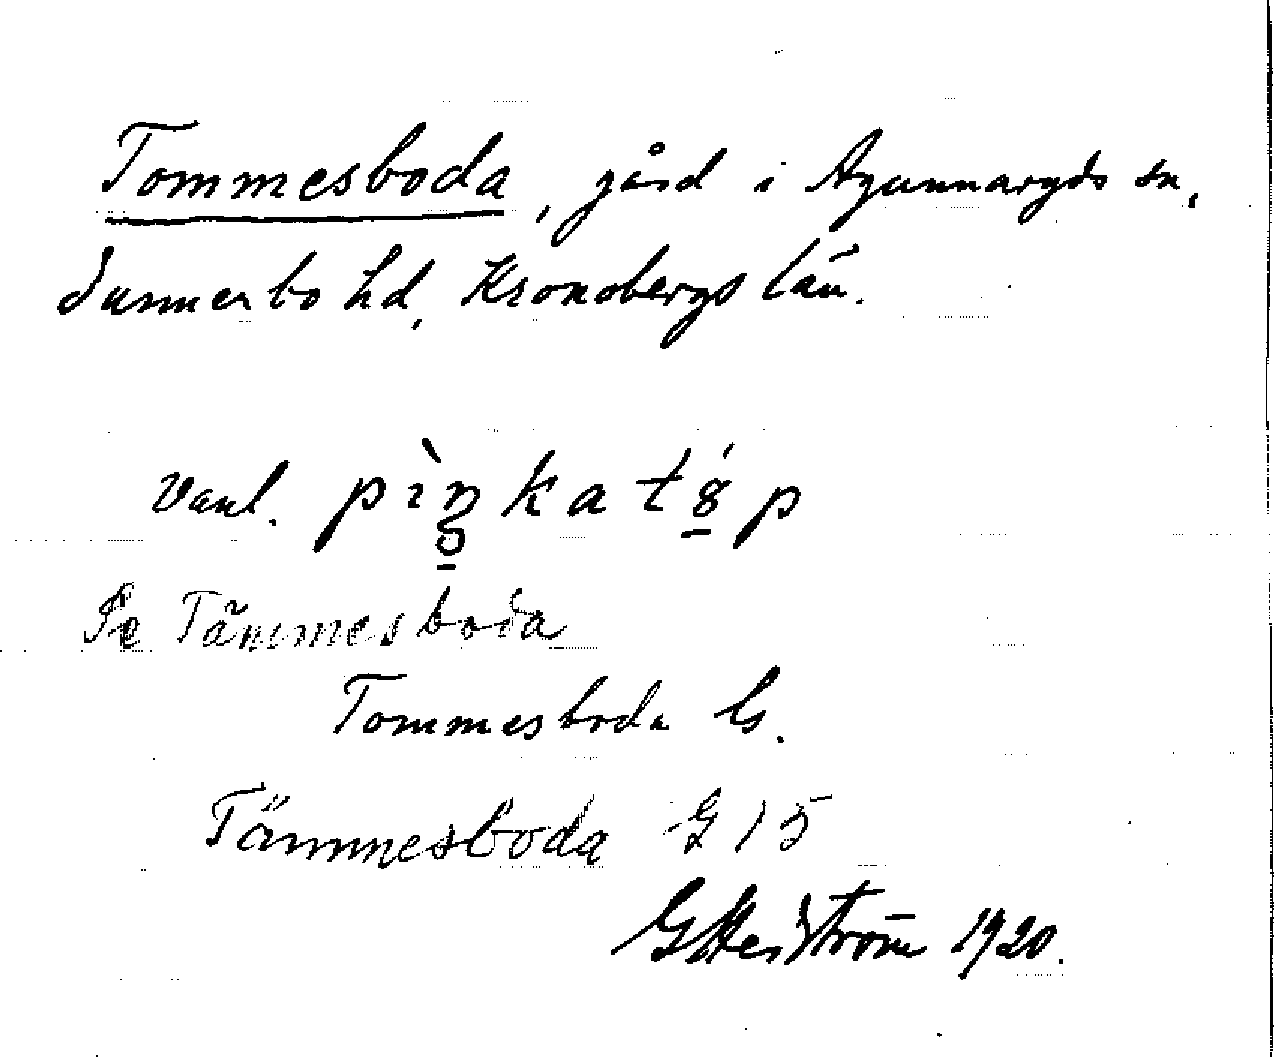 Tommesboda, gård i Agunnaryds sn,
Sunnerbo hd, Kronobergs län.
Vanl. pìŋkatóp
Se Tämmesboda
Tommesboda G.
Tämmesboda G 15
1920.